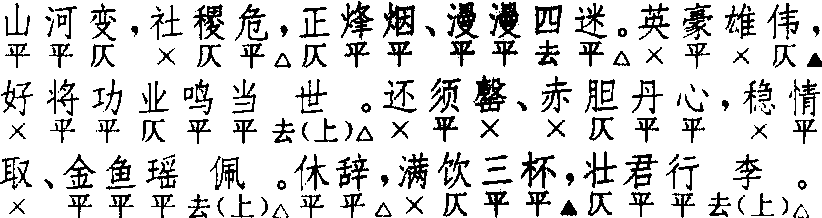 山河变，社稷危，正烽烟、漫漫四迷。英豪雄伟，
平平仄 ×仄平△仄平平 平平去平△×平×仄▲
好将功业鸣当世。还须罄、赤胆丹心，稳情
×平平仄平平去(上)△×平× ×仄平平 ×平
取、金鱼瑶佩。休辞，满饮三杯，壮君行李。
× 平平平去(上)△平平△×仄平平▲仄平平去(上)△